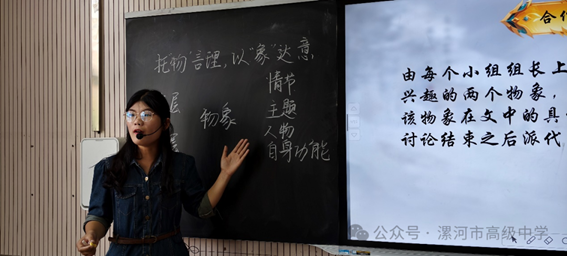 托物言理,以"象"达意
层
物象
情节
主题
人物
自身功能
合作
由每个小组组长上
兴趣的两个物象,
该物象在文中的具
讨论结束之后派代
公众号·漯河市高级中学